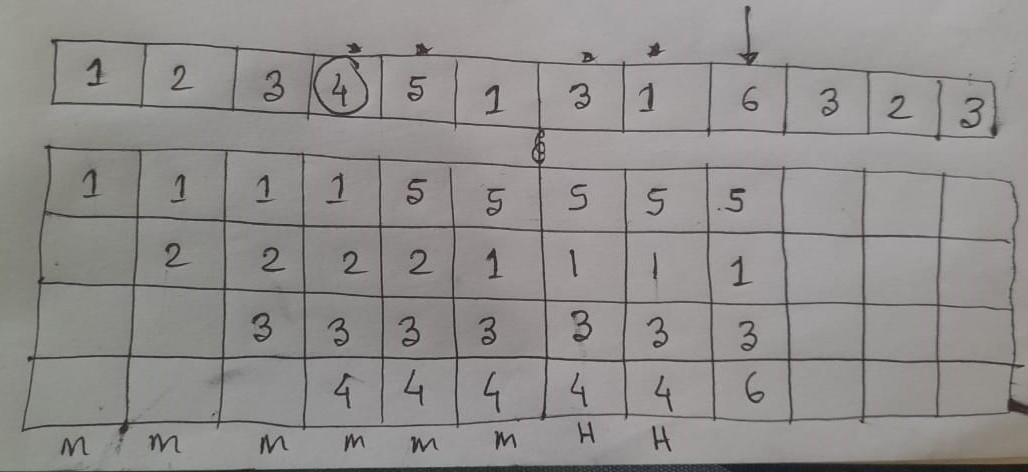 1 2 3 4 5 1 3 1 6 3 2 3
1 1 1 1 5 5 5 5 5
2 2 2 2 1 1 1 1
3 3 3 3 3 3 3
4 4 4 4 4 6
m m m m m m H H